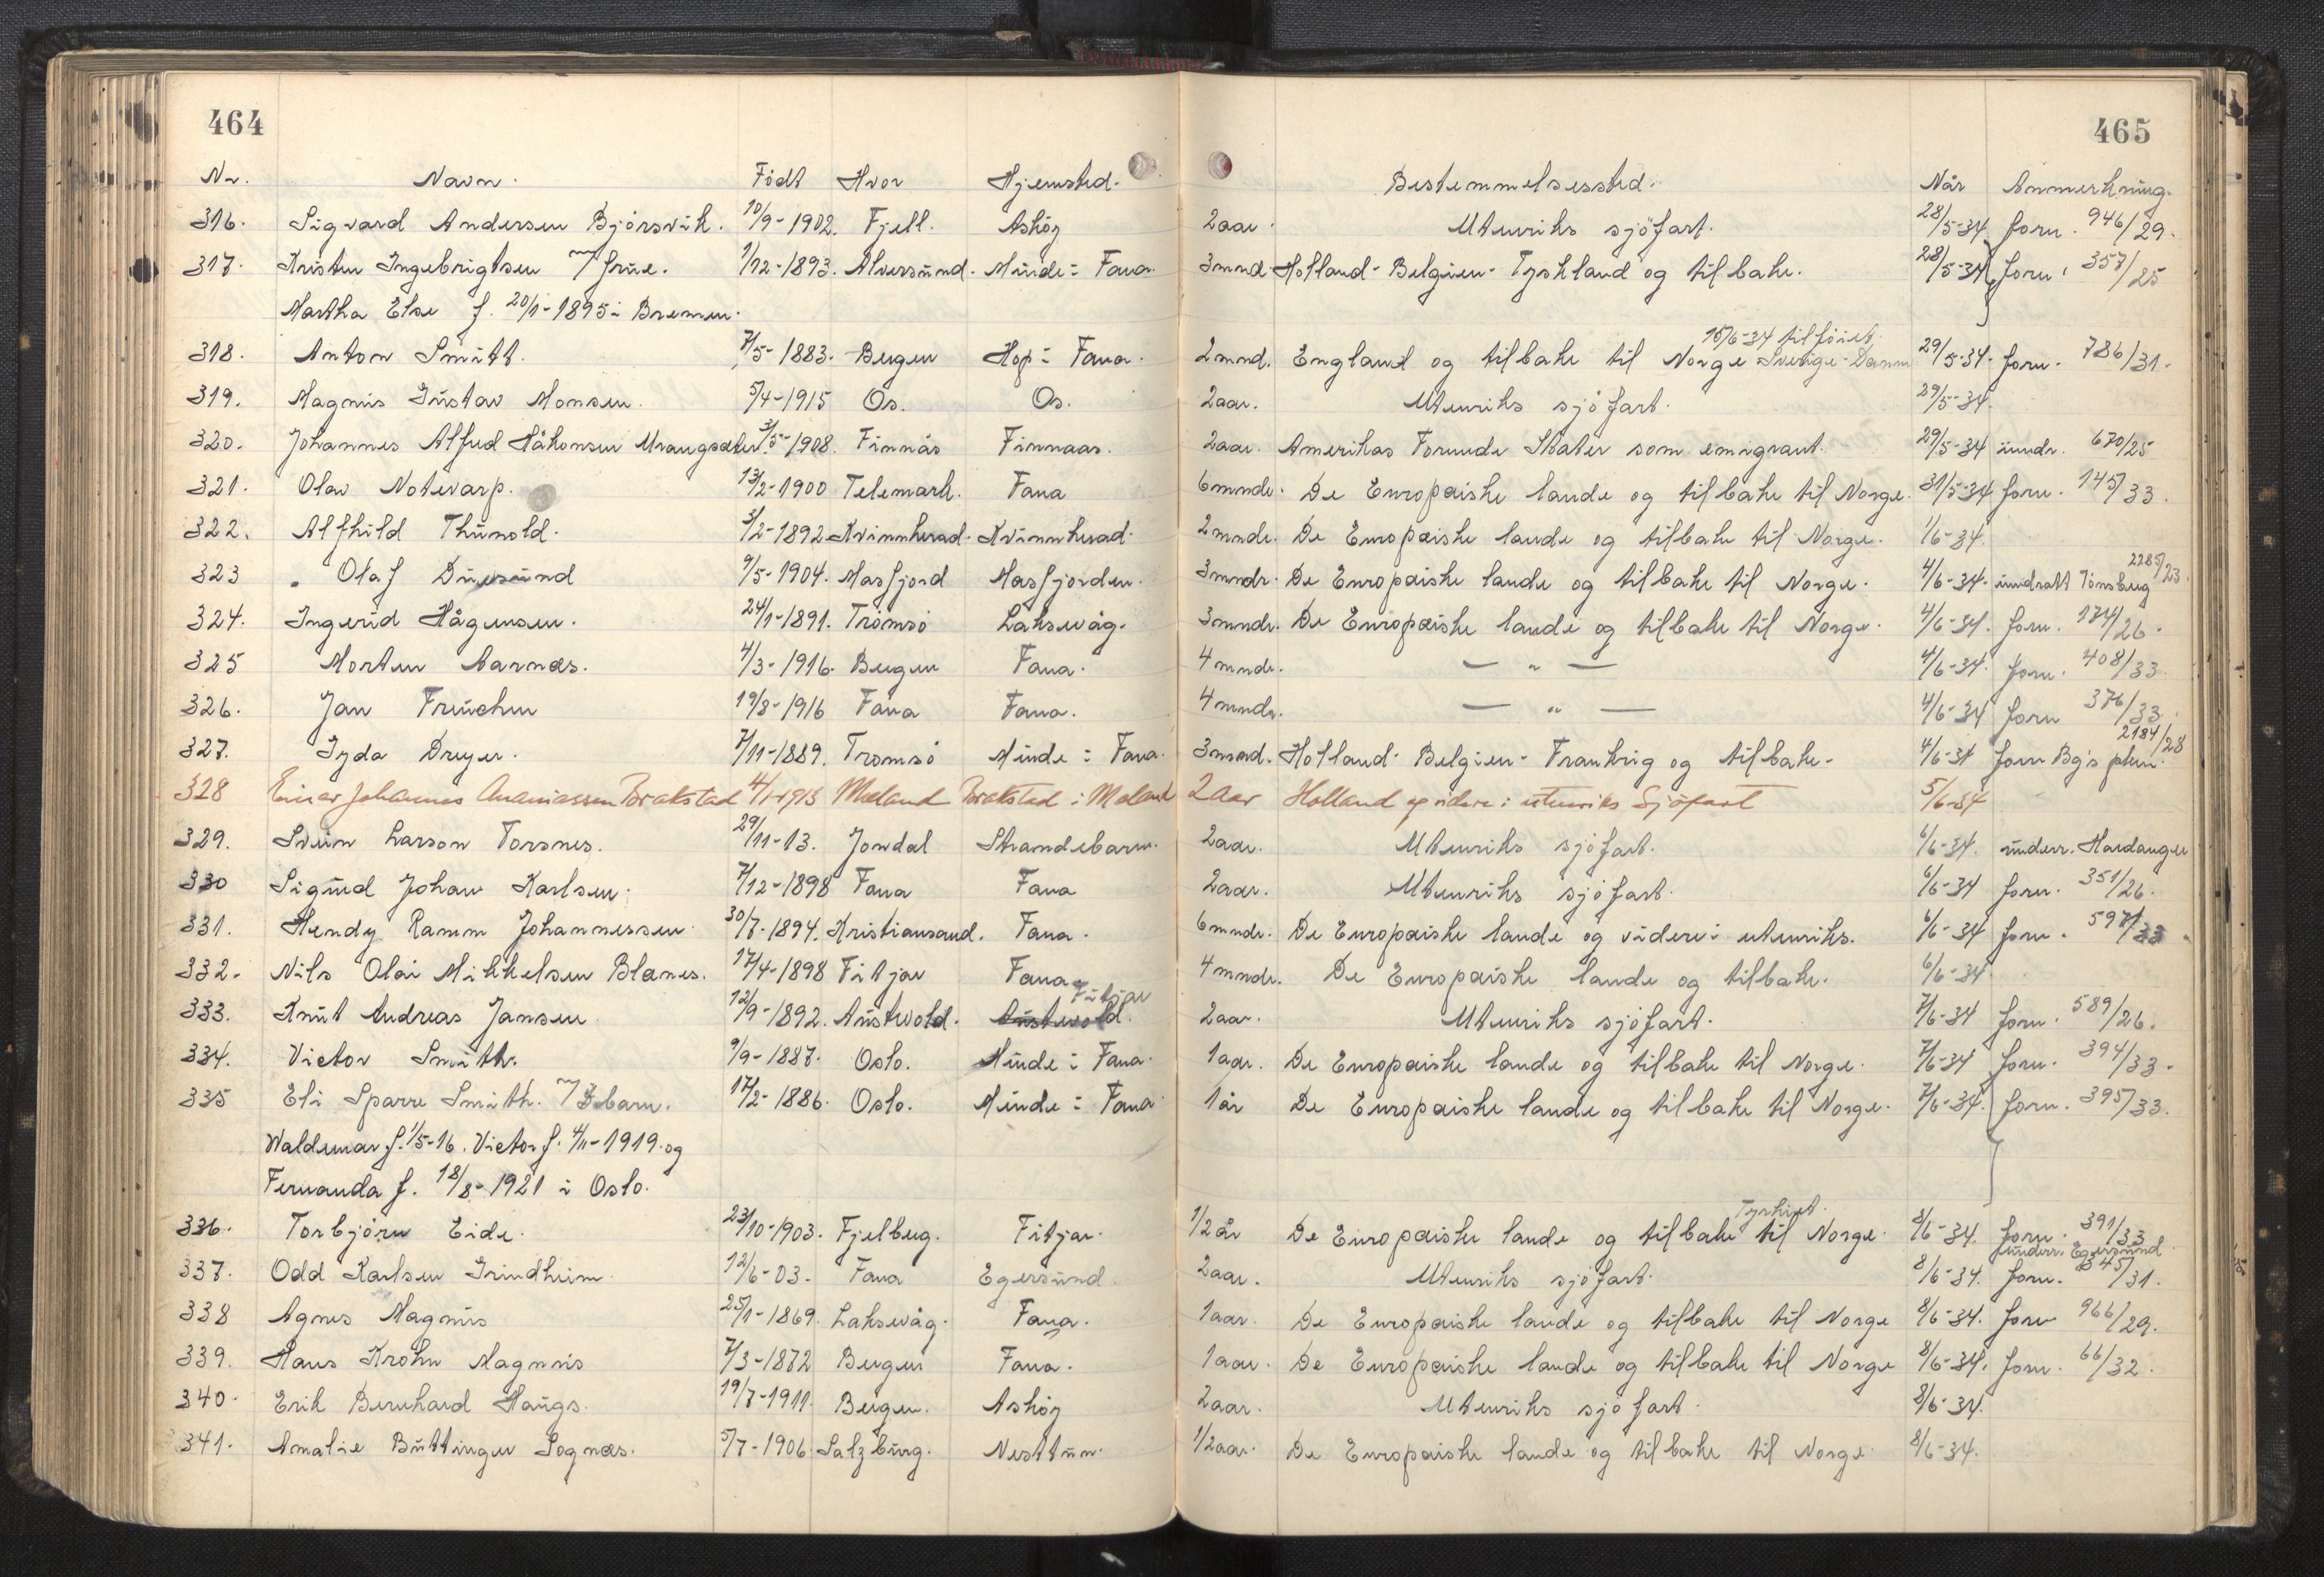 464
465
Nr. Navn. Født Hvor Hjemsted. Bestemmelsessted. Når Anmerkning.
316. Sigvard Andersen Bjørsvik. 10/9-1902. Fjell. Askøy 2 aar. Utenriks sjøfart. 28/5-34 forn. 946/29.
317. Kristen Ingebrigtsen m/frue. 1/12-1893. Alversund. Minde i Fana. 3 mnd. Holland-Belgien-Tyskland og tilbake. 28/5-34 forn. 357/25
Martha Else f. 20/1-1895 i Bremen.
15/6-34 tilføiet
318. Anton Smitt. 7/5-1883. Bergen Hop i Fana. 2 mnd. England og tilbake til Norge Sverige-Danm 29/5-34. forn. 786/31.
319. Magnus Gustav Monsen. 5/4-1915 Os. Os. 2 aar. Utenriks sjøfart. 29/5-34.
320. Johannes Alfred Håkonsen Vrangsæter 3/5-1908. Finnås Finnaas. 2 aar. Amerikas Forende Stater som emigrant. 29/5-34 undr. 670/25
321. Olav Notevarp. 13/2-1900 Telemark. Fana 6 mndr. De Europæiske lande og tilbake til Norge. 31/5-34 forn. 145/33.
322. Alfhild Thunold. 3/2-1892 Kvinnherad. Kvinnherad. 2 mndr. De Europæiske lande og tilbake til Norge. 1/6-34.
2285/23.
323 Olaf Duesund 9/5-1904. Masfjord Masfjorden. 3 mndr. De Europæiske lande og tilbake til Norge. 4/6-34. inndratt Tønsberg
324. Ingerid Hågensen. 24/1-1891. Tromsø Laksevåg. 3 mndr. De Europæiske lande og tilbake til Norge. 4/6-34. forn. 174/26.
325 Morten Aarnæs. 4/3-1916. Bergen Fana. 4 mndr. — " — 4/6-34. forn. 408/33.
326. Jan Freuchen 19/8-1916 Fana Fana. 4 mndr. — " — 4/6-34 forn 376/33.
2184/28
327. Gyda Dreyer. 7/11-1889. Tromsø Minde i Fana. 3 mnd. Holland-Belgien-Frankrig og tilbake. 4/6-34 forn Bg's pkm.
328 Einar Johannes Ananiassen Brakstad 4/1-1913 Meland Brakstad i Meland 2 aar Holland og videre i utenriks Sjøfart 5/6-34
329. Svein Larson Torsnes. 29/11-13. Jondal Strandebarm. 2 aar. Utenriks sjøfart. 6/6-34. underr. Hardanger
330 Sigurd Johan Karlsen. 7/12-1898 Fana Fana 2 aar. Utenriks sjøfart. 6/6-34 forn. 351/26.
331. Hendy Ramm Johannessen. 30/7-1894. Kristiansand. Fana. 6 mndr. De Europæiske lande og videre i utenriks. 6/6-34 forn. 597/33.
332. Nils Olai Mikkelsen Blanes. 17/4-1898 Fitjar Fana. 4 mndr. De Europæiske lande og tilbake. 6/6-34.
Fitjar
333. Knut Andreas Jansen 12/9-1892. Austevold. Austevold. 2 aar. Utenriks sjøfart. 7/6-34 forn. 589/26.
334. Victor Smith. 9/9-1887. Oslo. Minde i Fana. 1 aar. De Europæiske lande og tilbake til Norge. 7/6-34 forn. 394/33.
335 Eli Sparre Smith. m/3 barn. 17/2-1886. Oslo. Minde i Fana. 1 år De Europæiske lande og tilbake til Norge. 7/6-34. forn. 395/33.
Waldemar f. 1/5-16. Victor f. 4/11-1919. og
Fernanda f. 18/8-1921 i Oslo.
Tyrkiet.
336. Torbjørn Eide. 23/10-1903. Fjelberg. Fitjar. 1/2 år De Europæiske lande og tilbake til Norge. 8/6-34. forn. 391/33
underr. Egersund.
337. Odd Karlsen Grindheim 12/6-03. Fana Egersund. 2 aar. Utenriks sjøfart. 8/6-34. forn. 345/31.
338 Agnes Magnus 25/1-1869. Laksevåg. Fana. 1 aar. De Europæiske lande og tilbake til Norge 8/6-34. forn 966/29.
339. Hans Krohn Magnus 7/3-1872 Bergen Fana. 1 aar. De Europæiske lande og tilbake til Norge 8/6-34. forn. 66/32.
340. Erik Bernhard Haugs. 19/7-1911. Bergen. Askøy 2 aar. Utenriks sjøfart. 8/6-34.
341. Amalie Büttinger Sognæs. 5/7-1906 Salzburg. Nesttun. 1/2 aar. De Europæiske lande og tilbake til Norge 8/6-34.